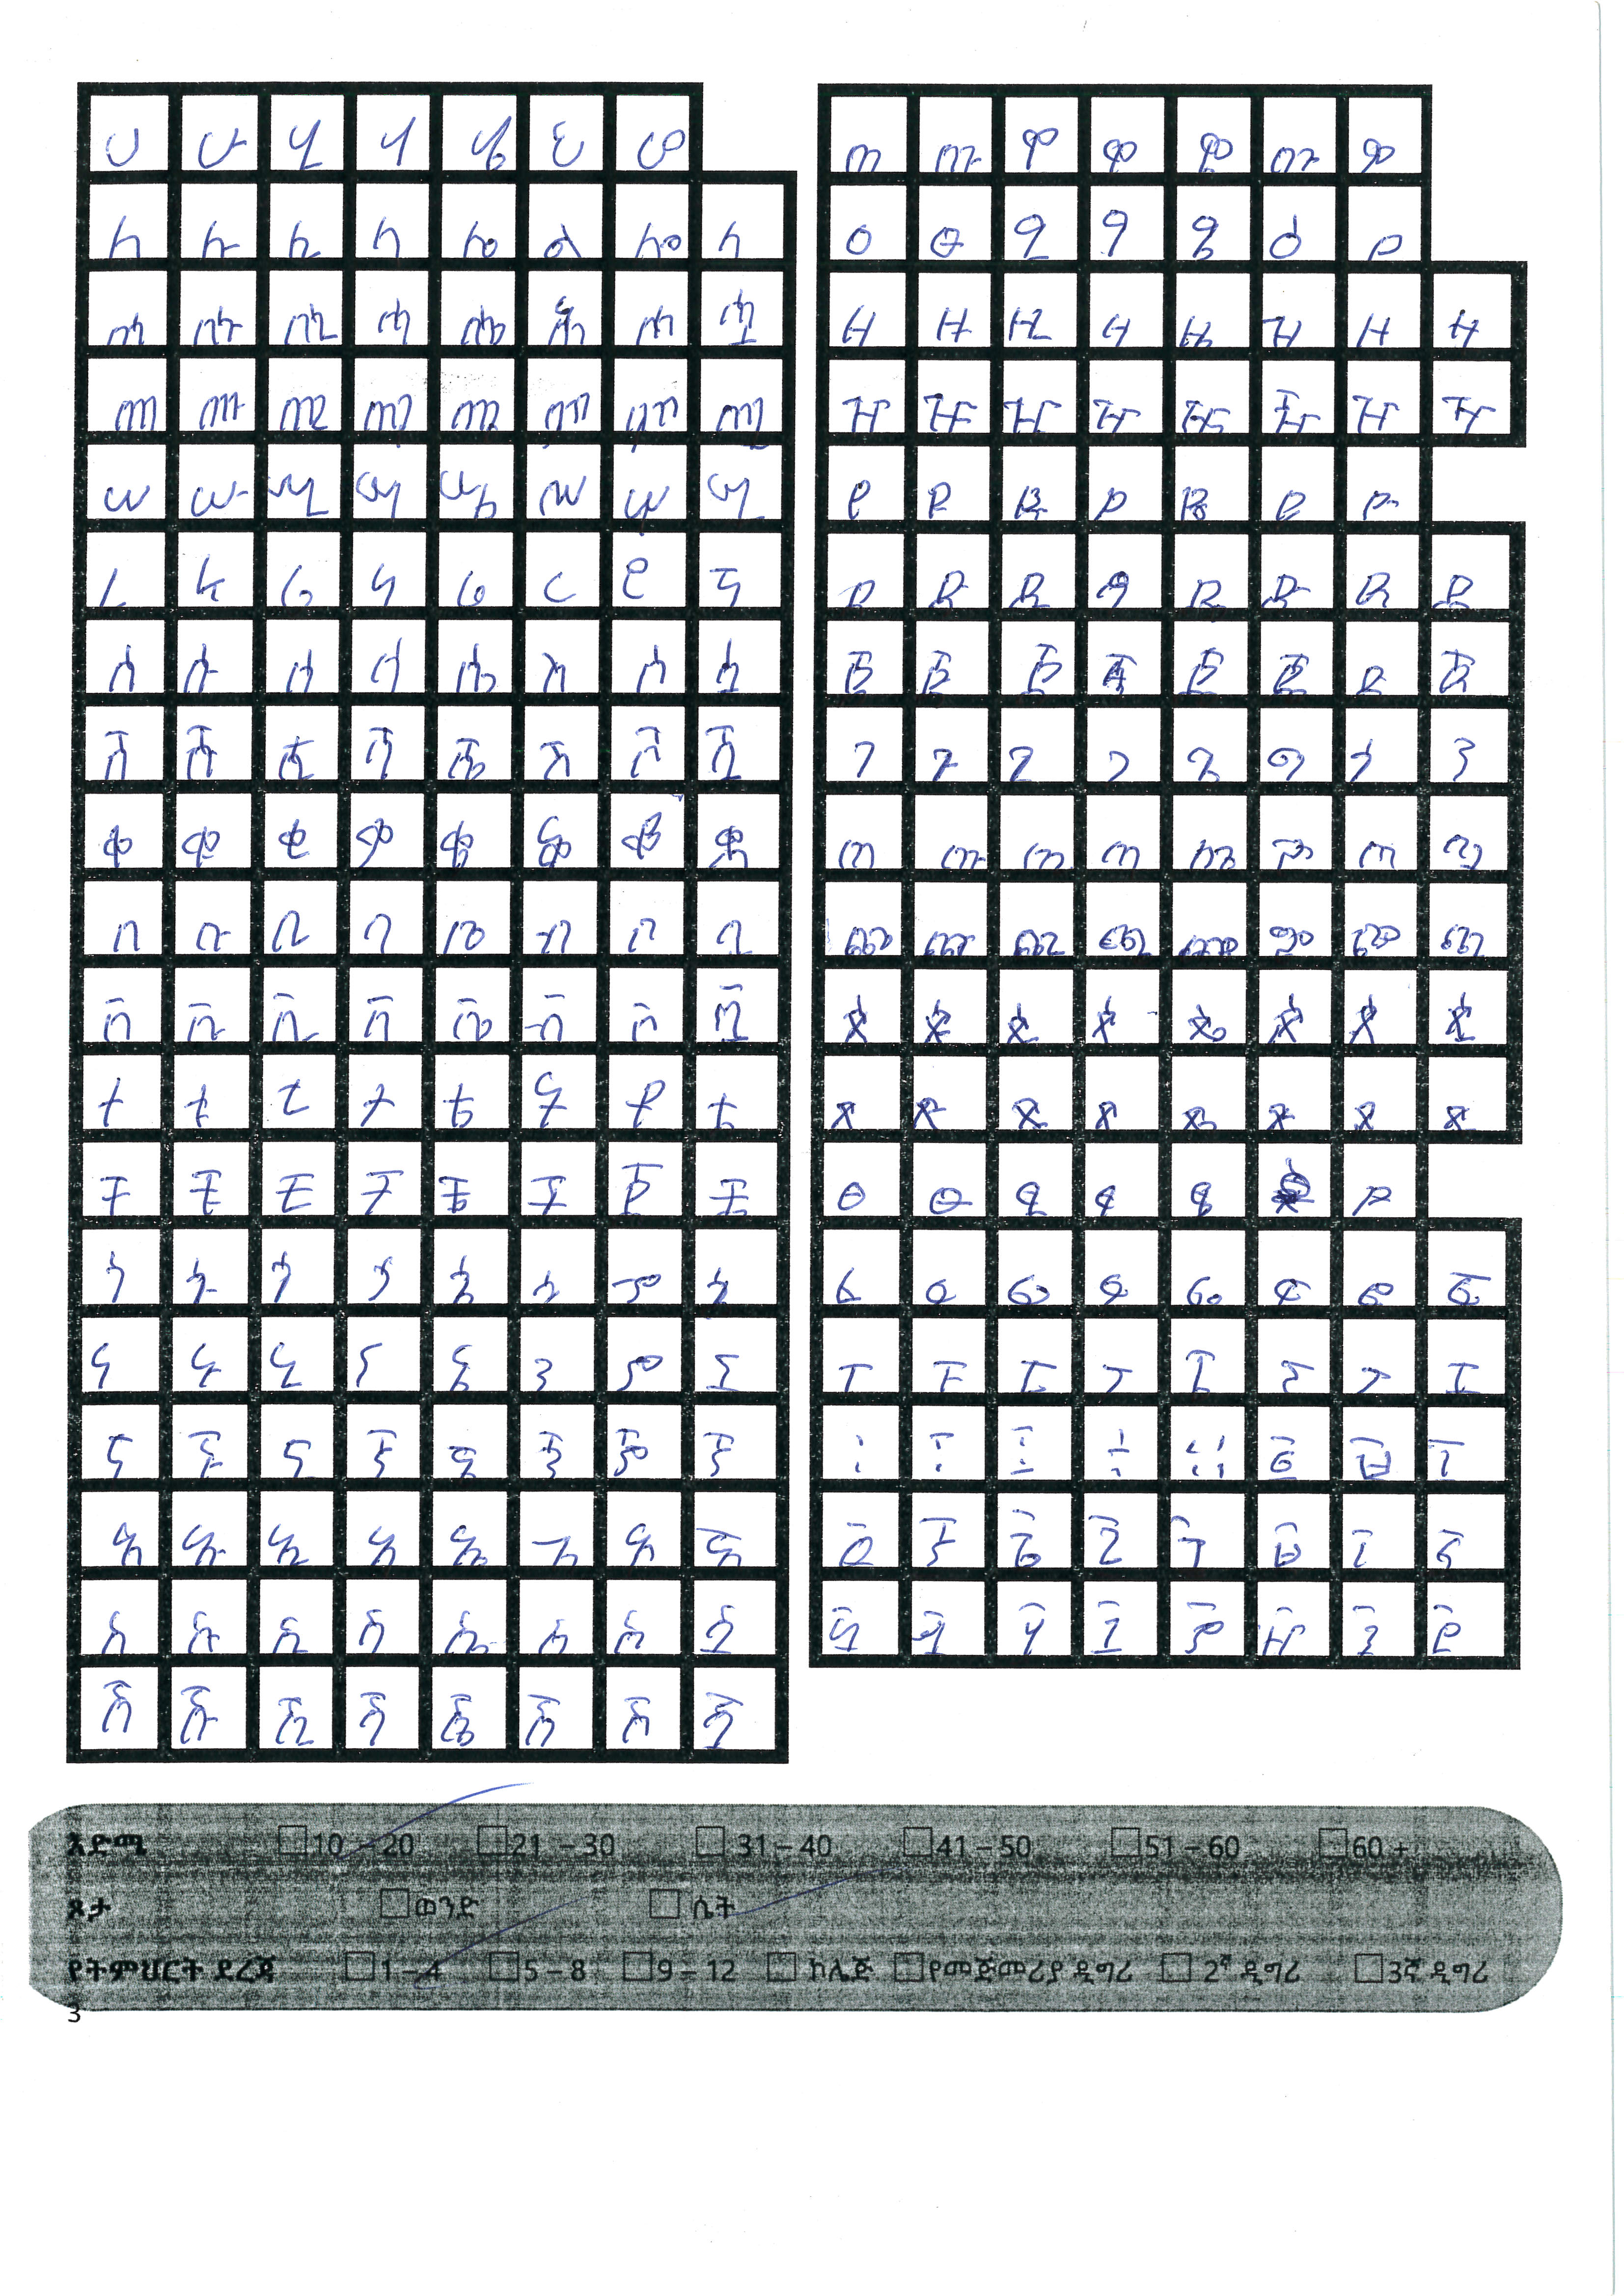 ሀ ሁ ሂ ሃ ሄ ህ ሆ
ለ ሉ ሊ ላ ሌ ል ሎ ሏ
ሐ ሑ ሒ ሓ ሔ ሕ ሖ ሗ
መ ሙ ሚ ማ ሜ ም ሞ ሟ
ሠ ሡ ሢ ሣ ሤ ሥ ሦ ሧ
ረ ሩ ሪ ራ ሬ ር ሮ ሯ
ሰ ሱ ሲ ሳ ሴ ስ ሶ ሷ
ሸ ሹ ሺ ሻ ሼ ሽ ሾ ሿ
ቀ ቁ ቂ ቃ ቄ ቅ ቆ ቋ
በ ቡ ቢ ባ ቤ ብ ቦ ቧ
ቨ ቩ ቪ ቫ ቬ ቭ ቮ ቯ
ተ ቱ ቲ ታ ቴ ት ቶ ቷ
ቸ ቹ ቺ ቻ ቼ ች ቾ ቿ
ኀ ኁ ኂ ኃ ኄ ኅ ኆ ኋ
ነ ኑ ኒ ና ኔ ን ኖ ኗ
ኘ ኙ ኚ ኛ ኜ ኝ ኞ ኟ
አ ኡ ኢ ኣ ኤ እ ኦ ኧ
ከ ኩ ኪ ካ ኬ ክ ኮ ኳ
ኸ ኹ ኺ ኻ ኼ ኽ ኾ ዃ
ወ ዉ ዊ ዋ ዌ ው ዎ
ዐ ዑ ዒ ዓ ዔ ዕ ዖ
ዘ ዙ ዚ ዛ ዜ ዝ ዞ ዟ
ዠ ዡ ዢ ዣ ዤ ዥ ዦ ዧ
የ ዩ ዪ ያ ዬ ይ ዮ
ደ ዱ ዲ ዳ ዴ ድ ዶ ዷ
ጀ ጁ ጂ ጃ ጄ ጅ ጆ ጇ
ገ ጉ ጊ ጋ ጌ ግ ጎ ጓ
ጠ ጡ ጢ ጣ ጤ ጥ ጦ ጧ
ጨ ጩ ጪ ጫ ጬ ጭ ጮ ጯ
ጰ ጱ ጲ ጳ ጴ ጵ ጶ ጷ
ጸ ጹ ጺ ጻ ጼ ጽ ጾ ጿ
ፀ ፁ ፂ ፃ ፄ ፆ
ፈ ፉ ፊ ፋ ፌ ፍ ፎ ፏ
ፐ ፑ ፒ ፓ ፔ ፕ ፖ ፗ
እድሜ 10 – 20 21 – 30 31 – 40 41 – 50 51 – 60 60 +
ጾታ ወንድ ሴት
የትምህርት ደረጃ 1 – 4 5 – 8 9 – 12 ኮሌጅ የመጀመሪያ ዲግሪ 2ኛ ዲግሪ 3ኛ ዲግሪ
3